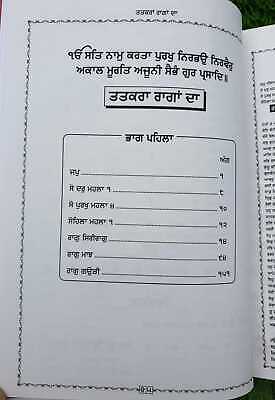 ਤਤਕਰਾ ਰਾਗਾਂ ਦਾ
ੴ ਸਤਿ ਨਾਮੁ ਕਰਤਾ ਪੁਰਖੁ ਨਿਰਭਉ ਨਿਰਵੈਰੁ
ਅਕਾਲ ਮੂਰਤਿ ਅਜੂਨੀ ਸੈਭੰ ਗੁਰ ਪ੍ਰਸਾਦਿ॥
ਤਤਕਰਾ ਰਾਗਾਂ ਦਾ
ਭਾਗ ਪਹਿਲਾ
ਅੰਗ
ਜਪੁ ੧
ਸੋ ਦਰੁ ਮਹਲਾ ੧ ੮
ਸੋ ਪੁਰਖੁ ਮਹਲਾ ੪ ੧੦
ਸੋਹਿਲਾ ਮਹਲਾ ੧ ੧੨
ਰਾਗੁ ਸਿਰੀਰਾਗੁ ੧੪
ਰਾਗੁ ਮਾਝ ੯੪
ਰਾਗੁ ਗਉੜੀ ੧੫੧